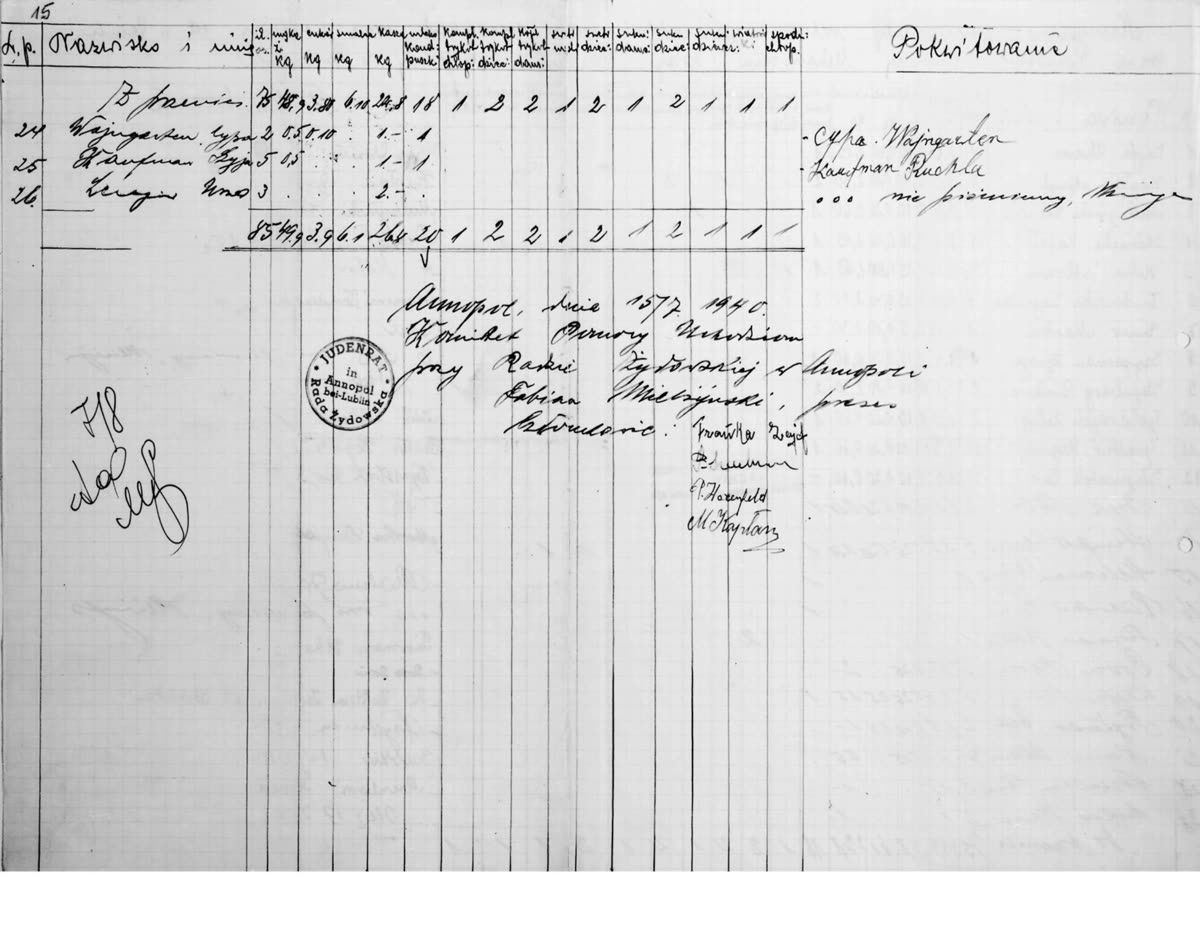 15
L.p. Nazwisko i imię il. os. mąka ż kg cukier kg smalec kg kasza kg mleko kond. puszki kompl. trykot chłop: kompl. trykot dziec: kosz trykot dams: swetr swetr dziec: sukn: dams: sukn dziec: spodn: chłop. Pokwitowania
Z przenies. 75 48,9 3.80 6.10 24.8 18 1 2 2 1 2 1 2 1 1 1
24 Wajngarten Cypa 2 0,5 0.10 1.- 1 - Cypa Wajngarten
25 Kaufman 5 0,5 1.- 1 - Kaufman Ruchla
26. 3 2.- ooo nie piśmienny,
85 49.9 3.9 6.1 26.8 20 1 2 2 1 2 1 2 1 1 1
Annopol, dnia 15/7 1940.
Komitet Pomocy Uchodźcom
przy Radzie Żydowskiej w Annopolu
JUDENRAT
in
Annopol
bei-Lublin
Rada Żydowska
Fabian Mielżyński, prezes
Członkowie:
P. Hozenfeld
M Kapłan
7/8